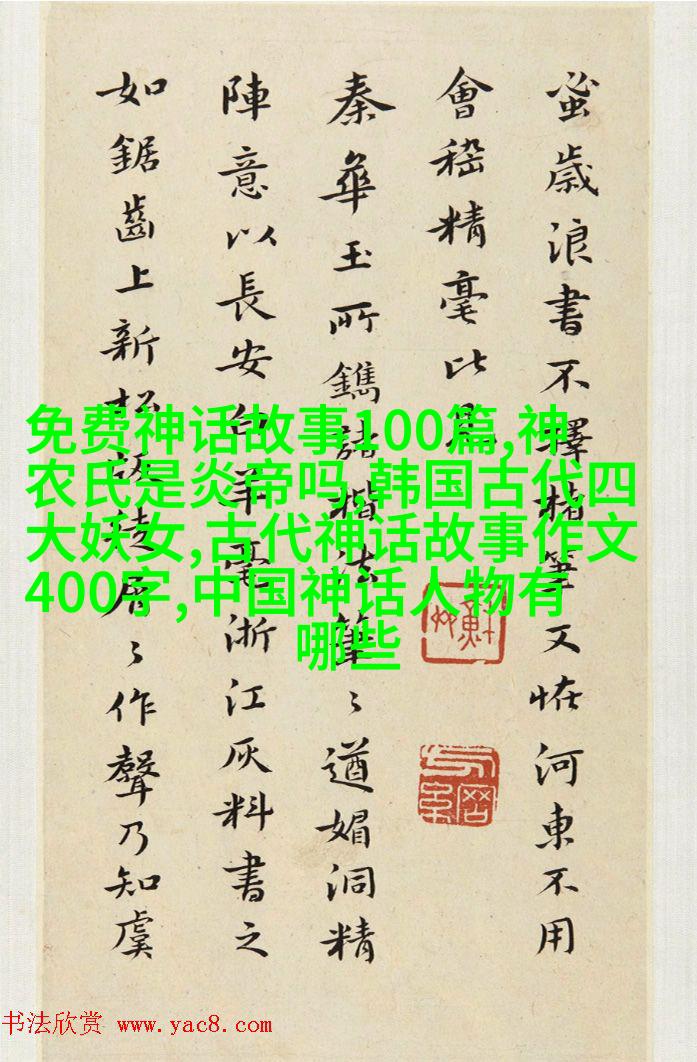 蚤歲浪書不擇楮筆又恠河東不用
會稽精毫比
秦華玉所鐫諸楷法筆〻遒媚洞精
陣意以長安白羊毫浙江灰料書之
如鋸齒上新松版徒屑〻作聲乃知虞
免费神话故事100篇,神
农氏是炎帝吗,韩国古代四
大妖女,古代神话故事作文
400字,中国神话人物有
哪些
书法欣赏 www.yac8.com